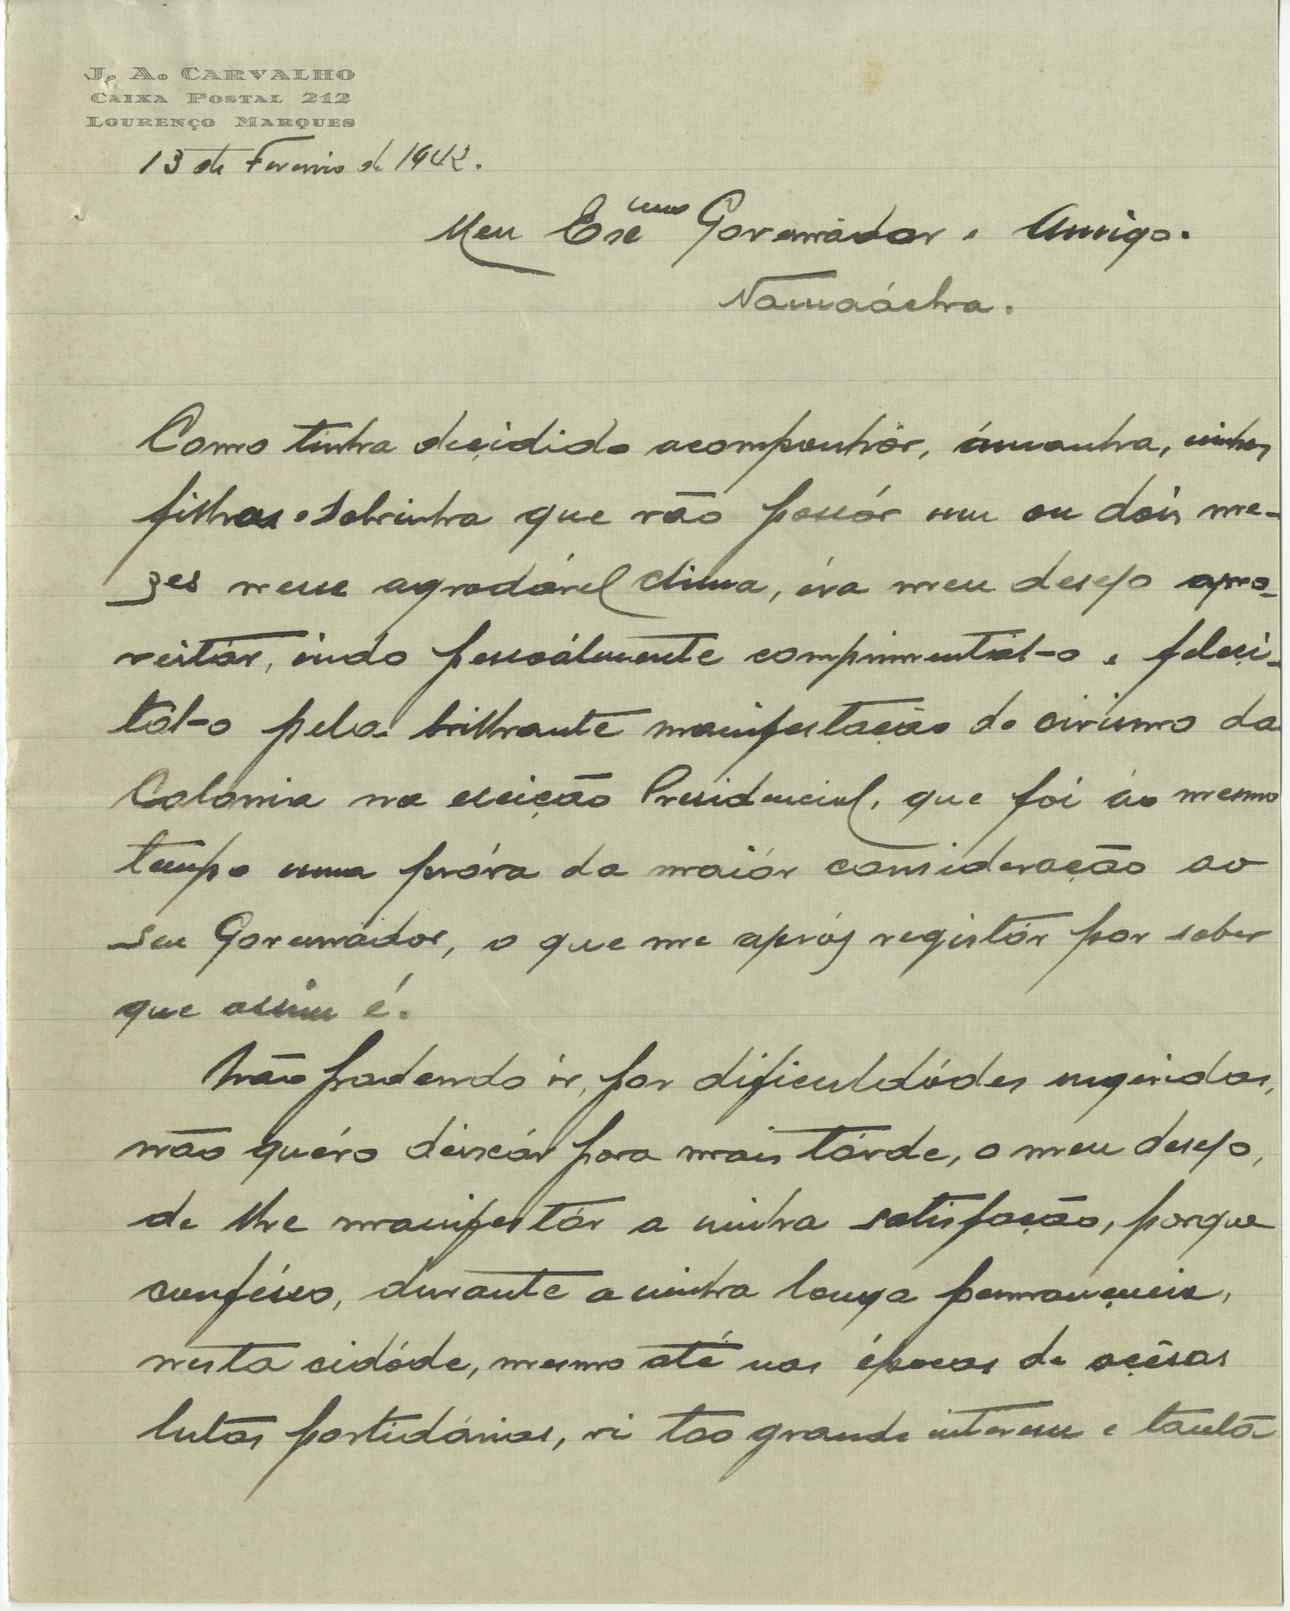 J. A. CARVALHO
CAIXA POSTAL 212
LOURENÇO MARQUES
13 de Fevereiro de 1942.
Meu Excmo Governadôr e Amigo.
Namaácha.
Como tinha deçidido acompanhár, ámanha, minhas
filhas e Sobrinha que vão passár um ou dois me-
zes nesse agradável clima, éra meu desejo apro-
veitár, indo pessoálmente comprimentál-o e feleçi-
tál-o pela brilhante manifestação de civismo da
Colonia na eleição Presidencial, que foi áo mesmo
tempo uma próva da maiór consideração ao
seu Governadôr, o que me apráz registár por saber
que assim é.
Não podendo ir, por dificuldádes surgidas,
não quéro deixár para mais tárde, o meu desejo,
de lhe manifestár a minha satisfação, porque
conféssо, durante a minha longa permanençia,
nesta cidáde, mesmo até nas épocas de açêsas
lutas partidárias, vi tão grande interesse e tanta